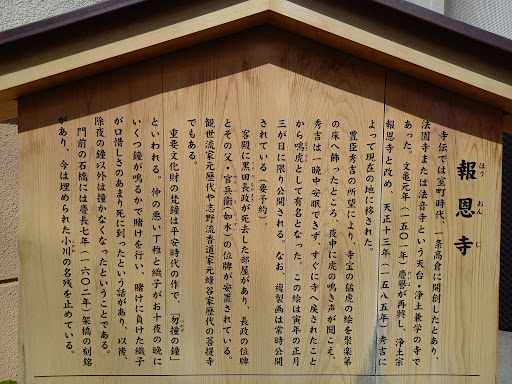 報恩寺
ほうおんじ
寺伝では室町時代、一条高倉に開創したとあり、
法園寺または法音寺という天台・浄土兼学の寺で
あった。文亀元年（一五〇一年）慶誉が再興し、浄土宗
報恩寺と改め、天正十三年（一五八五年）秀吉に
よって現在の地に移された。
豊臣秀吉の所望により、寺宝の猛虎の絵を聚楽第
の床へ飾ったところ、夜中に虎の鳴き声が聞こえ、
秀吉は一晩中安眠できず、すぐに寺へ戻されたこと
から鳴虎として有名となった。この絵は寅年の正月
三が日に限り公開される。なお、複製画は常時公開
されている（要予約）。
客殿に黒田長政が死去した部屋があり、長政の位牌
とその父・官兵衛（如水）の位牌が安置されている。
観世流家元歴代や志野流香道家元蜂谷家歴代の菩提寺
でもある。
重要文化財の梵鐘は平安時代の作で、「勿撞の鐘」
といわれる。仲の悪い丁稚と織子がお十夜の晩に
いくつ鐘が鳴るかで賭けを行い、賭けに負けた織子
が口惜しさのあまり死に到ったという話があり、以後、
除夜の鐘以外は撞かなくなったということである。
門前の石橋には慶長七年（一六〇二年）架橋の刻銘
があり、今は埋められた小川の名残を止めている。